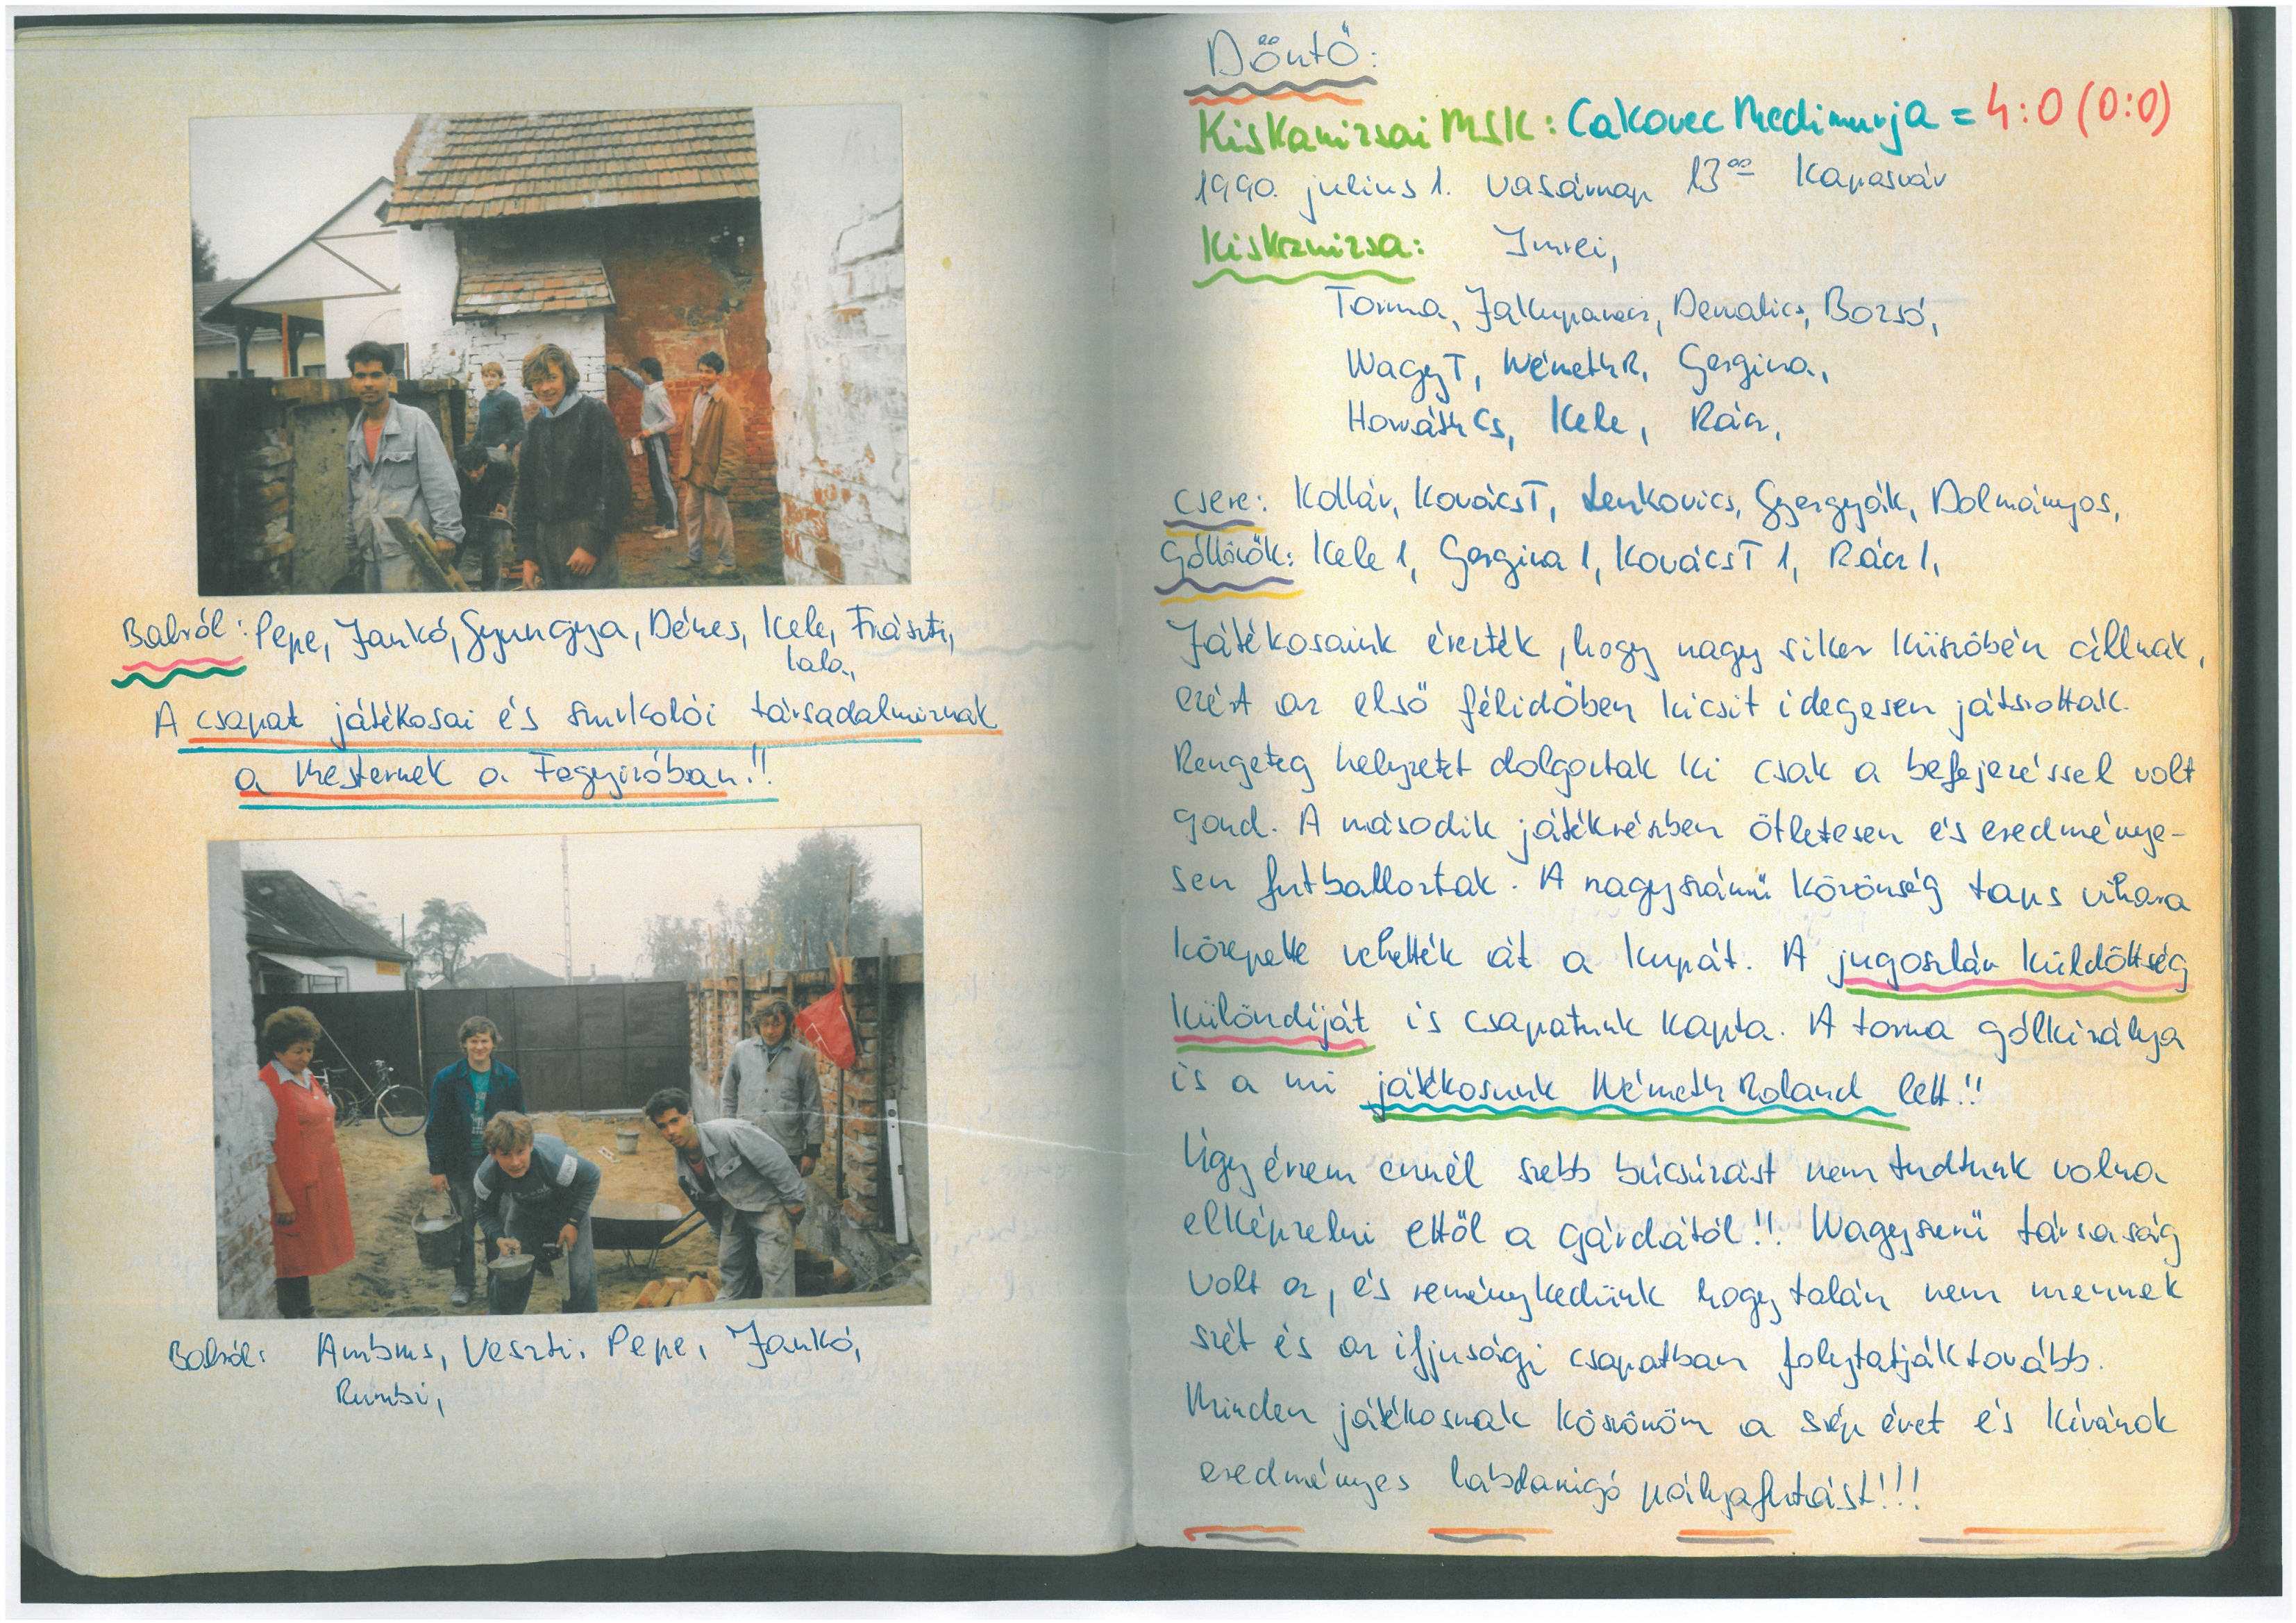 Balról: Pepe, Jankó, Gyungya, Dénes, Kele, Frászti,
Lala,
A csapat játékosai és szurkolói társadalmiznak
a Mesternek a Fagyizóban!!
Balról: Ambrus, Veszti, Pepe, Jankó,
Rumbi,
Döntő:
Kiskanizsai MSK : Cakovec Medimurja = 4:0 (0:0)
1990. julius 1. vasárnap 13⁰⁰ Kaposvár
Kiskanizsa: Imrei,
Torma, Jakupanecz, Dervalics, Bozsó,
Nagy T, Németh R, Gergina,
Horváth Cs, Kele, Rácz,
Csere: Kollár, Kovács T, Lenkovics, Gyergyák, Dolmányos,
Góllövők: Kele 1, Gergina 1, Kovács T 1, Rácz 1,
Játékosaink érezték, hogy nagy siker küszöbén állnak,
ezért az első félidőben kicsit idegesen játszottak.
Rengeteg helyzetet dolgoztak ki csak a befejezéssel volt
gond. A második játékrészben ötletesen és eredménye-
sen futballoztak. A nagyszámú közönség taps vihara
közepette vehették át a kupát. A jugoszláv küldöttség
különdíját is csapatunk kapta. A torna gólkirálya
is a mi játékosunk Németh Roland lett!!
Úgy érzem ennél szebb búcsúzást nem tudtunk volna
elképzelni ettől a gárdától!! Nagyszerű társaság
volt ez, és reménykedünk hogy talán nem mennek
szét és az ifjusági csapatban folytatják tovább.
Minden játékosnak köszönöm a szép évet és kívánok
eredményes labdarúgó pályafutást!!!